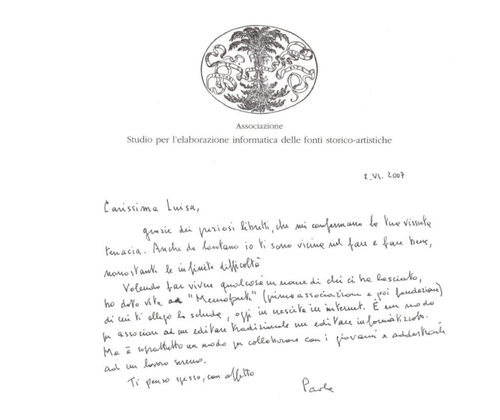 Associazione
Studio per l'elaborazione informatica delle fonti storico-artistiche
2.VI.2007
Carissima Luisa,
grazie dei preziosi libretti, che mi confermano la tua vissuta
tenacia. Anche da lontano io ti sono vicina nel fare e fare bene,
nonostante le infinite difficoltà.
Volendo far vivere qualcosa in nome di chi ci ha lasciato,
ho dato vita a "Memofonte" (prima associazione e poi fondazione)
di cui ti allego la scheda, oggi in crescita in internet. È un modo
per associare ad un editare tradizionale un editare informatizzato.
Ma è soprattutto un modo per collaborare con i giovani e addestrarli
ad un lavoro sereno.
Ti penso spesso, con affetto
Paola